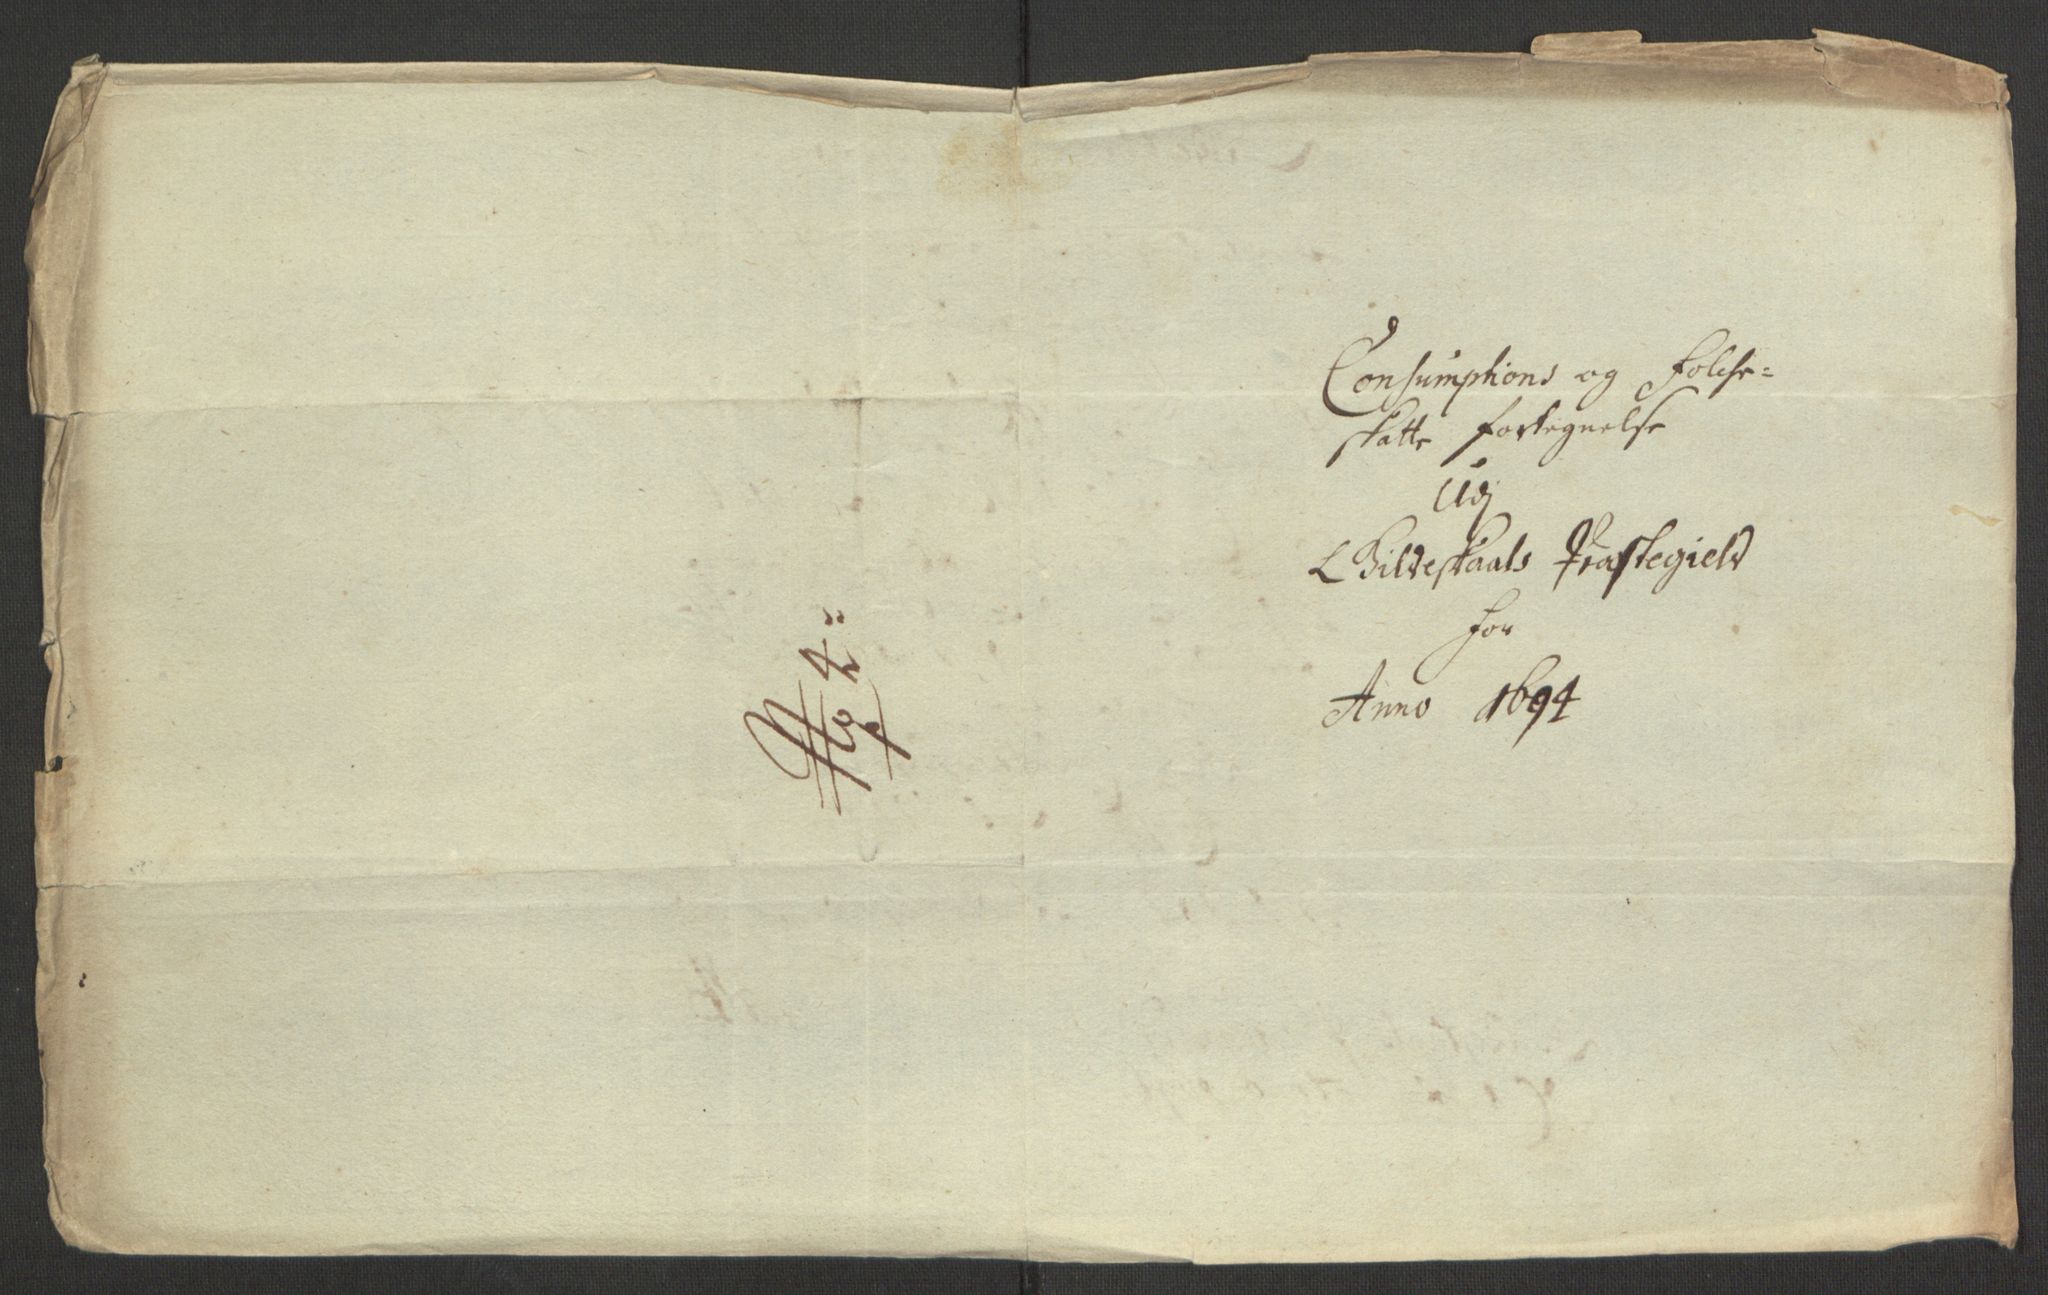 Consumptions og Folche=
skatte fortegnelse
Udj
Bildeskaals Præstegield
for
Anno 1694
No 4: